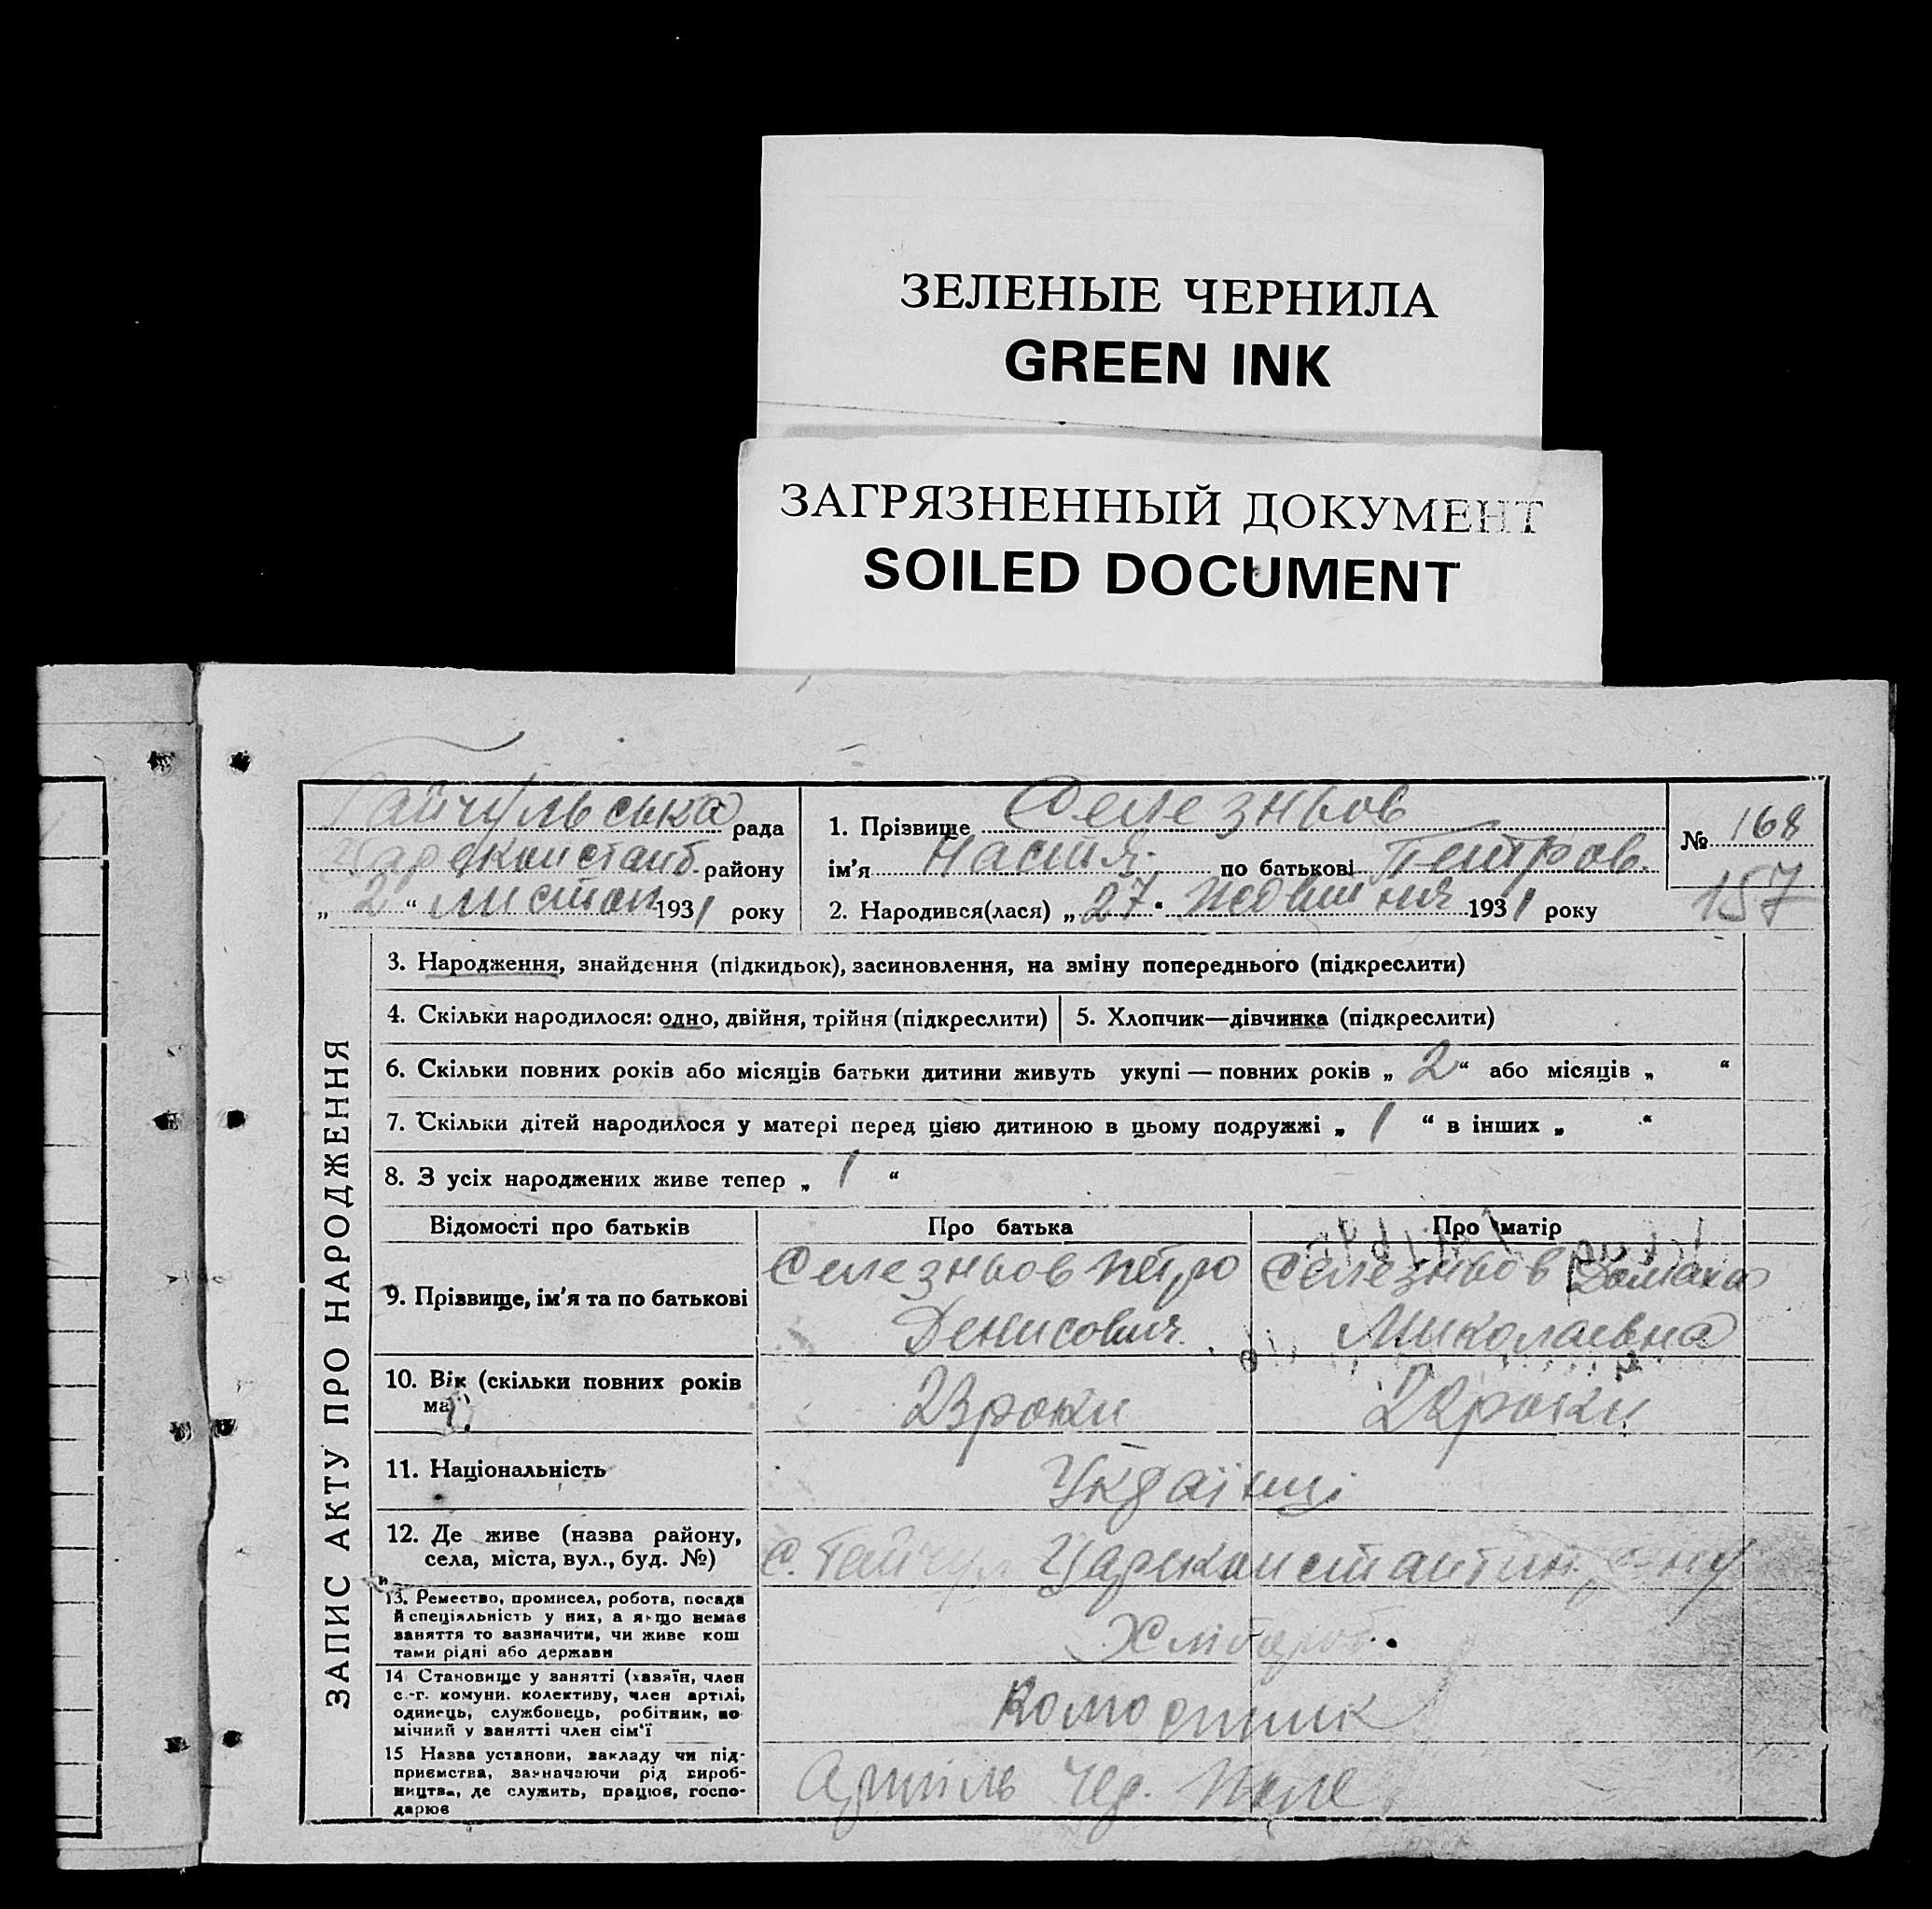 ЗЕЛЕНЫЕ ЧЕРНИЛА
GREEN INK
ЗАГРЯЗНЕННЫЙ ДОКУМЕНТ
SOILED DOCUMENT
ЗАПИС АКТУ ПРО НАРОДЖЕННЯ
Гайчульська рада
району
„ 2 “ листоп 1931 року
1. Прізвище Селезньов
ім'я Настя по батькові Петров.
2. Народився(лася) „ 27 “ Жовтня 1931 року
№ 168
157
3. Народження, знайдення (підкидьок), засиновлення, на зміну попереднього (підкреслити)
4. Скільки народилося: одно, двійня, трійня (підкреслити) 5. Хлопчик—дівчинка (підкреслити)
6. Скільки повних років або місяців батьки дитини живуть укупі — повних років „ 2 “ або місяців „ “
7. Скільки дітей народилося у матері перед цією дитиною в цьому подружжі „ 1 “ в інших „ “
8. З усіх народжених живе тепер „ 1 “
Відомості про батьків Про батька Про матір
9. Прізвище, ім'я та по батькові
Селезньов Петро
Денисович
Селезньов
Миколаевна
10. Вік (скільки повних років
має)
23 роки 22 роки
11. Національність
Українці
12. Де живе (назва району,
села, міста, вул., буд. №)
с. Гайчул
13. Ремество, промисел, робота, посада
й спеціяльність у них, а якщо немає
заняття то зазначити, чи живе кош
тами рідні або держави
Хлібороб.
14 Становище у занятті (хазяїн, член
с.-г. комуни, колективу, член артілі,
одинець, службовець, робітник, по
мічний у занятті член сім'ї
15 Назва установи, закладу чи під-
приємства, зазначаючи рід вироб-
ництва, де служить, працює, госпо-
дарює
Артіль Чер. Поле